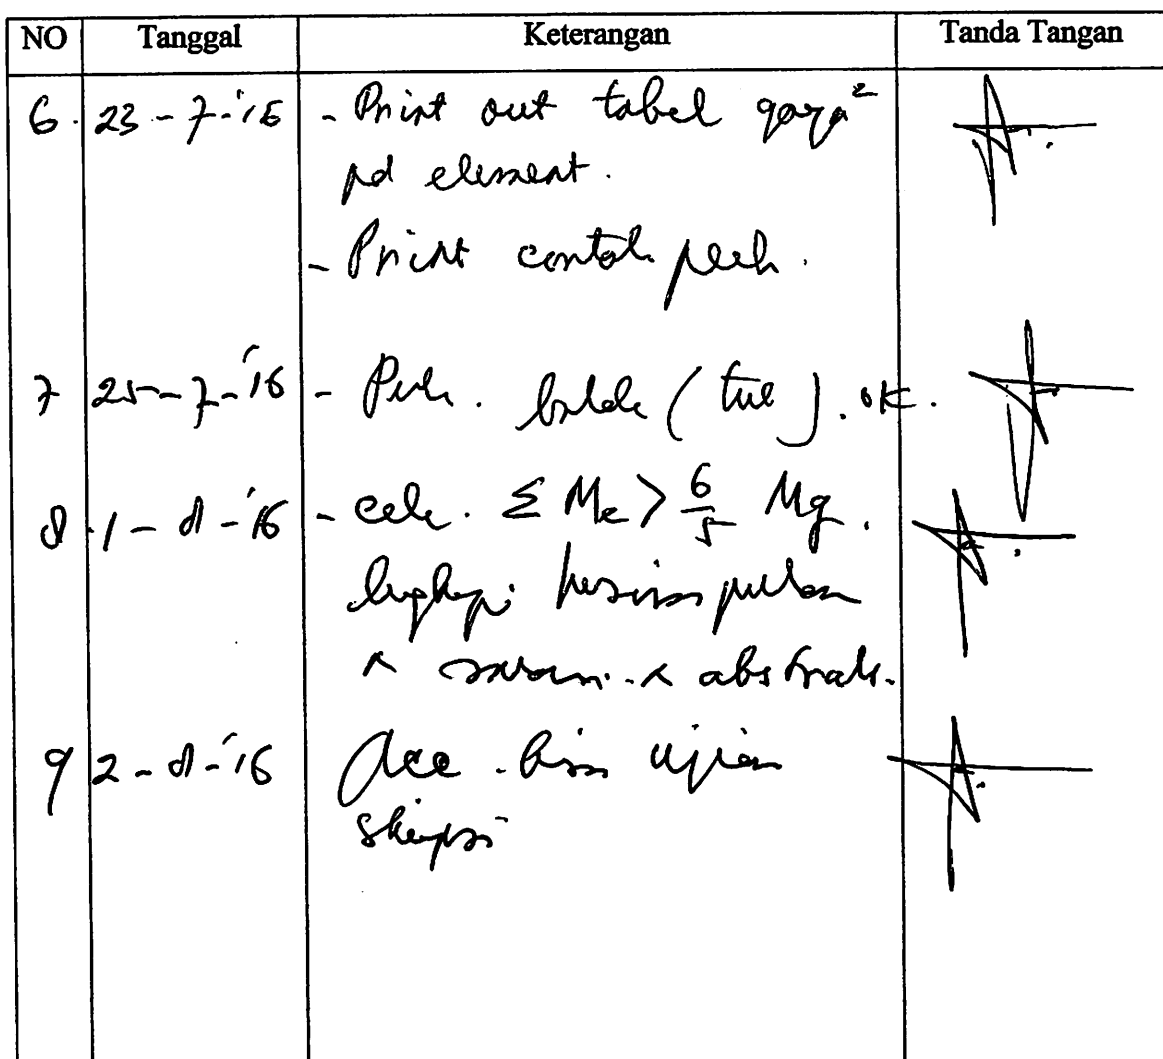 NO Tanggal Keterangan Tanda Tangan
6. 23-7-'16 - Print out tabel gaya²
pd element.
- Print contoh
7 25-7-'16 - balok ( ) . ok.
8 1-8-'16 - cek. Σ Mc > 6/5 Mg.
lengkapi kesimpulan
& saran. & abstrak.
9 2-8-'16 Acc. bisa ujian
skripsi